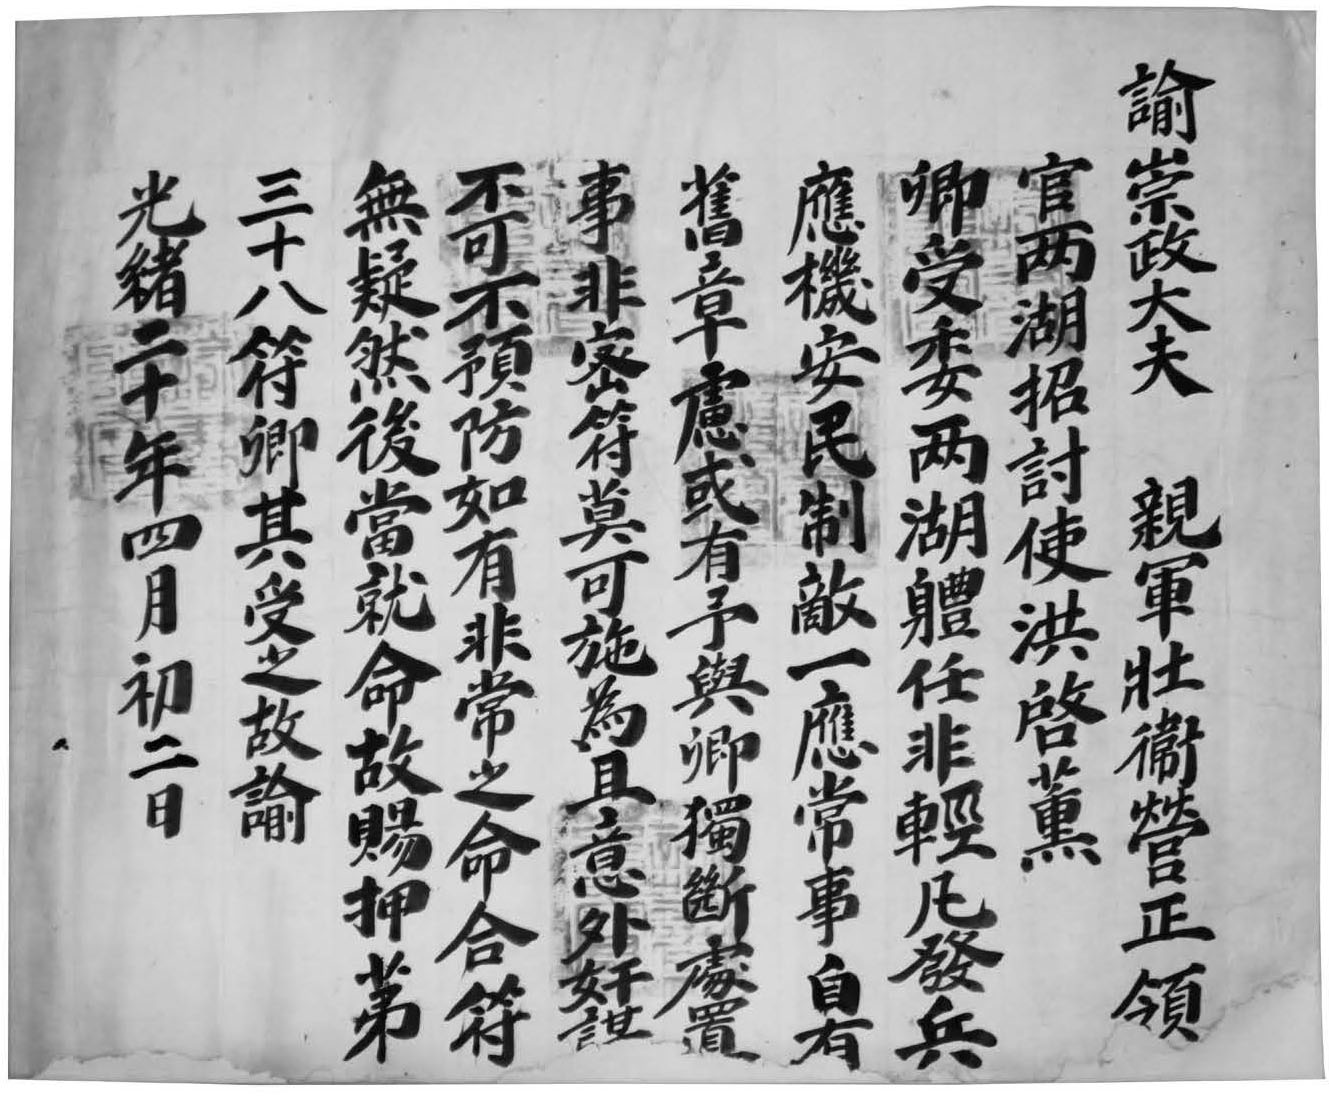 諭崇政大夫 親軍壯衞營正領
官两湖招討使洪啓薰
卿受委两湖體任非輕凡發兵
應機安民制敵一應常事自有
舊章慮或有予與卿獨斷處置
事非密符莫可施為且意外奸謀
不可不預防如有非常之命合符
無疑然後當就命故賜押第
三十八符卿其受之故諭
光緒二十年四月初二日